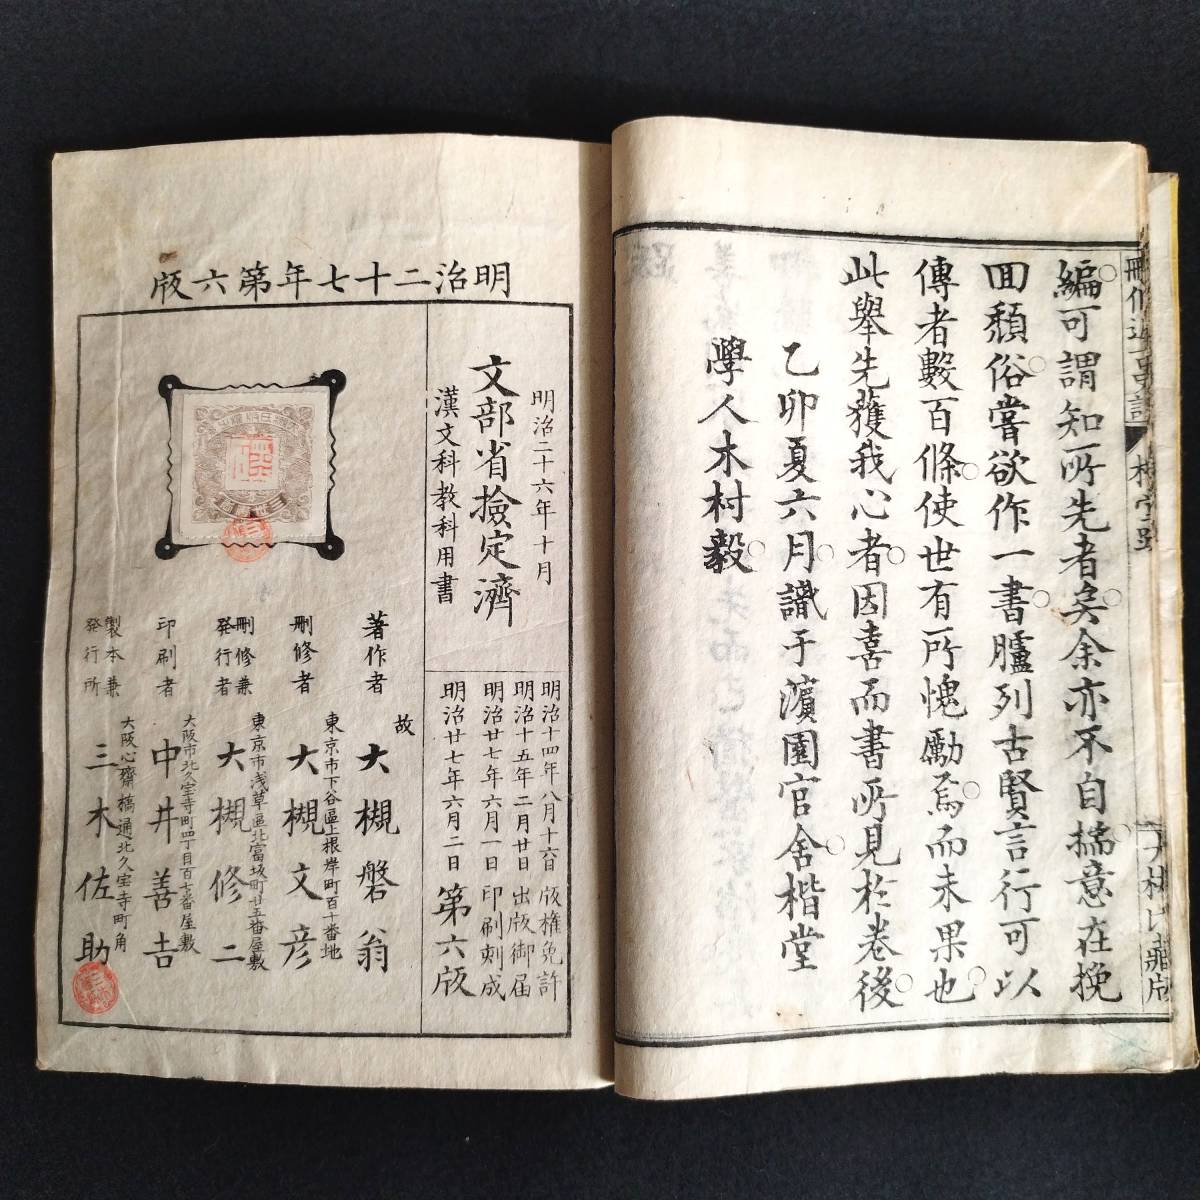 編可謂知所先者矣余亦不自揣意在挽
回頽俗嘗欲作一書臚列古賢言行可以
傳者數百條使世有所愧勵焉而未果也
此擧先獲我心者因喜而書所見於巻後
乙卯夏六月識于濱園官舍楷堂
學人木村毅
明治二十七年第六版
明治二十六年十月
文部省撿定濟
漢文科教科用書
明治十四年八月十六日版権免許
明治十五年二月廿日出版御届
明治廿七年六月一日印刷刻成
明治廿七年六月二日第六版
著作者 故 大槻磐翁
東京市下谷區上根岸町百十番地
刪修者 大槻文彦
東京市浅草區北富坂町廿五番屋敷
刪修兼發行者 大槻修二
大阪市北久宝寺町四丁目百七番屋敷
印刷者 中井善吉
大阪心齋橋通北久宝寺町角
製本兼發行所 三木佐助